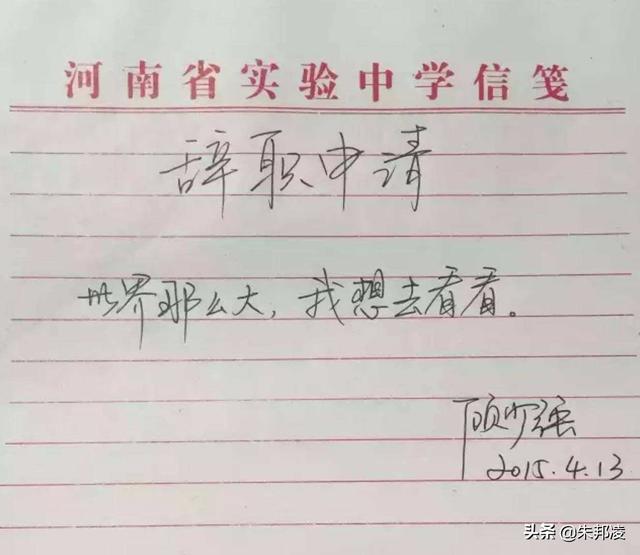 河南省实验中学信笺
辞职申请
世界那么大，我想去看看。
顾少强
2015.4.13
头条 @朱邦凌